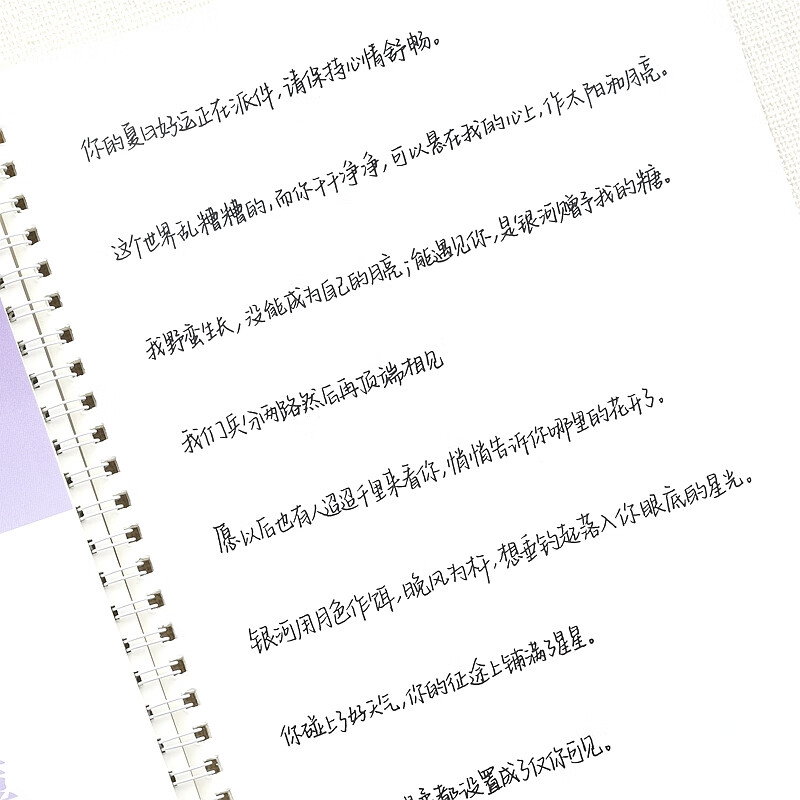 你的夏日好运正在派件,请保持心情舒畅。
这个世界乱糟糟的,而你干干净净,可以悬在我的心上,作太阳和月亮。
我野蛮生长,没能成为自己的月亮;能遇见你,是银河赠予我的糖。
我们兵分两路然后再顶端相见
愿以后也有人迢迢千里来看你,悄悄告诉你哪里的花开了。
银河用月色作饵,晚风为杆,想垂钓起落入你眼底的星光。
你碰上了好天气,你的征途上铺满了星星。
都设置成了仅你可见。